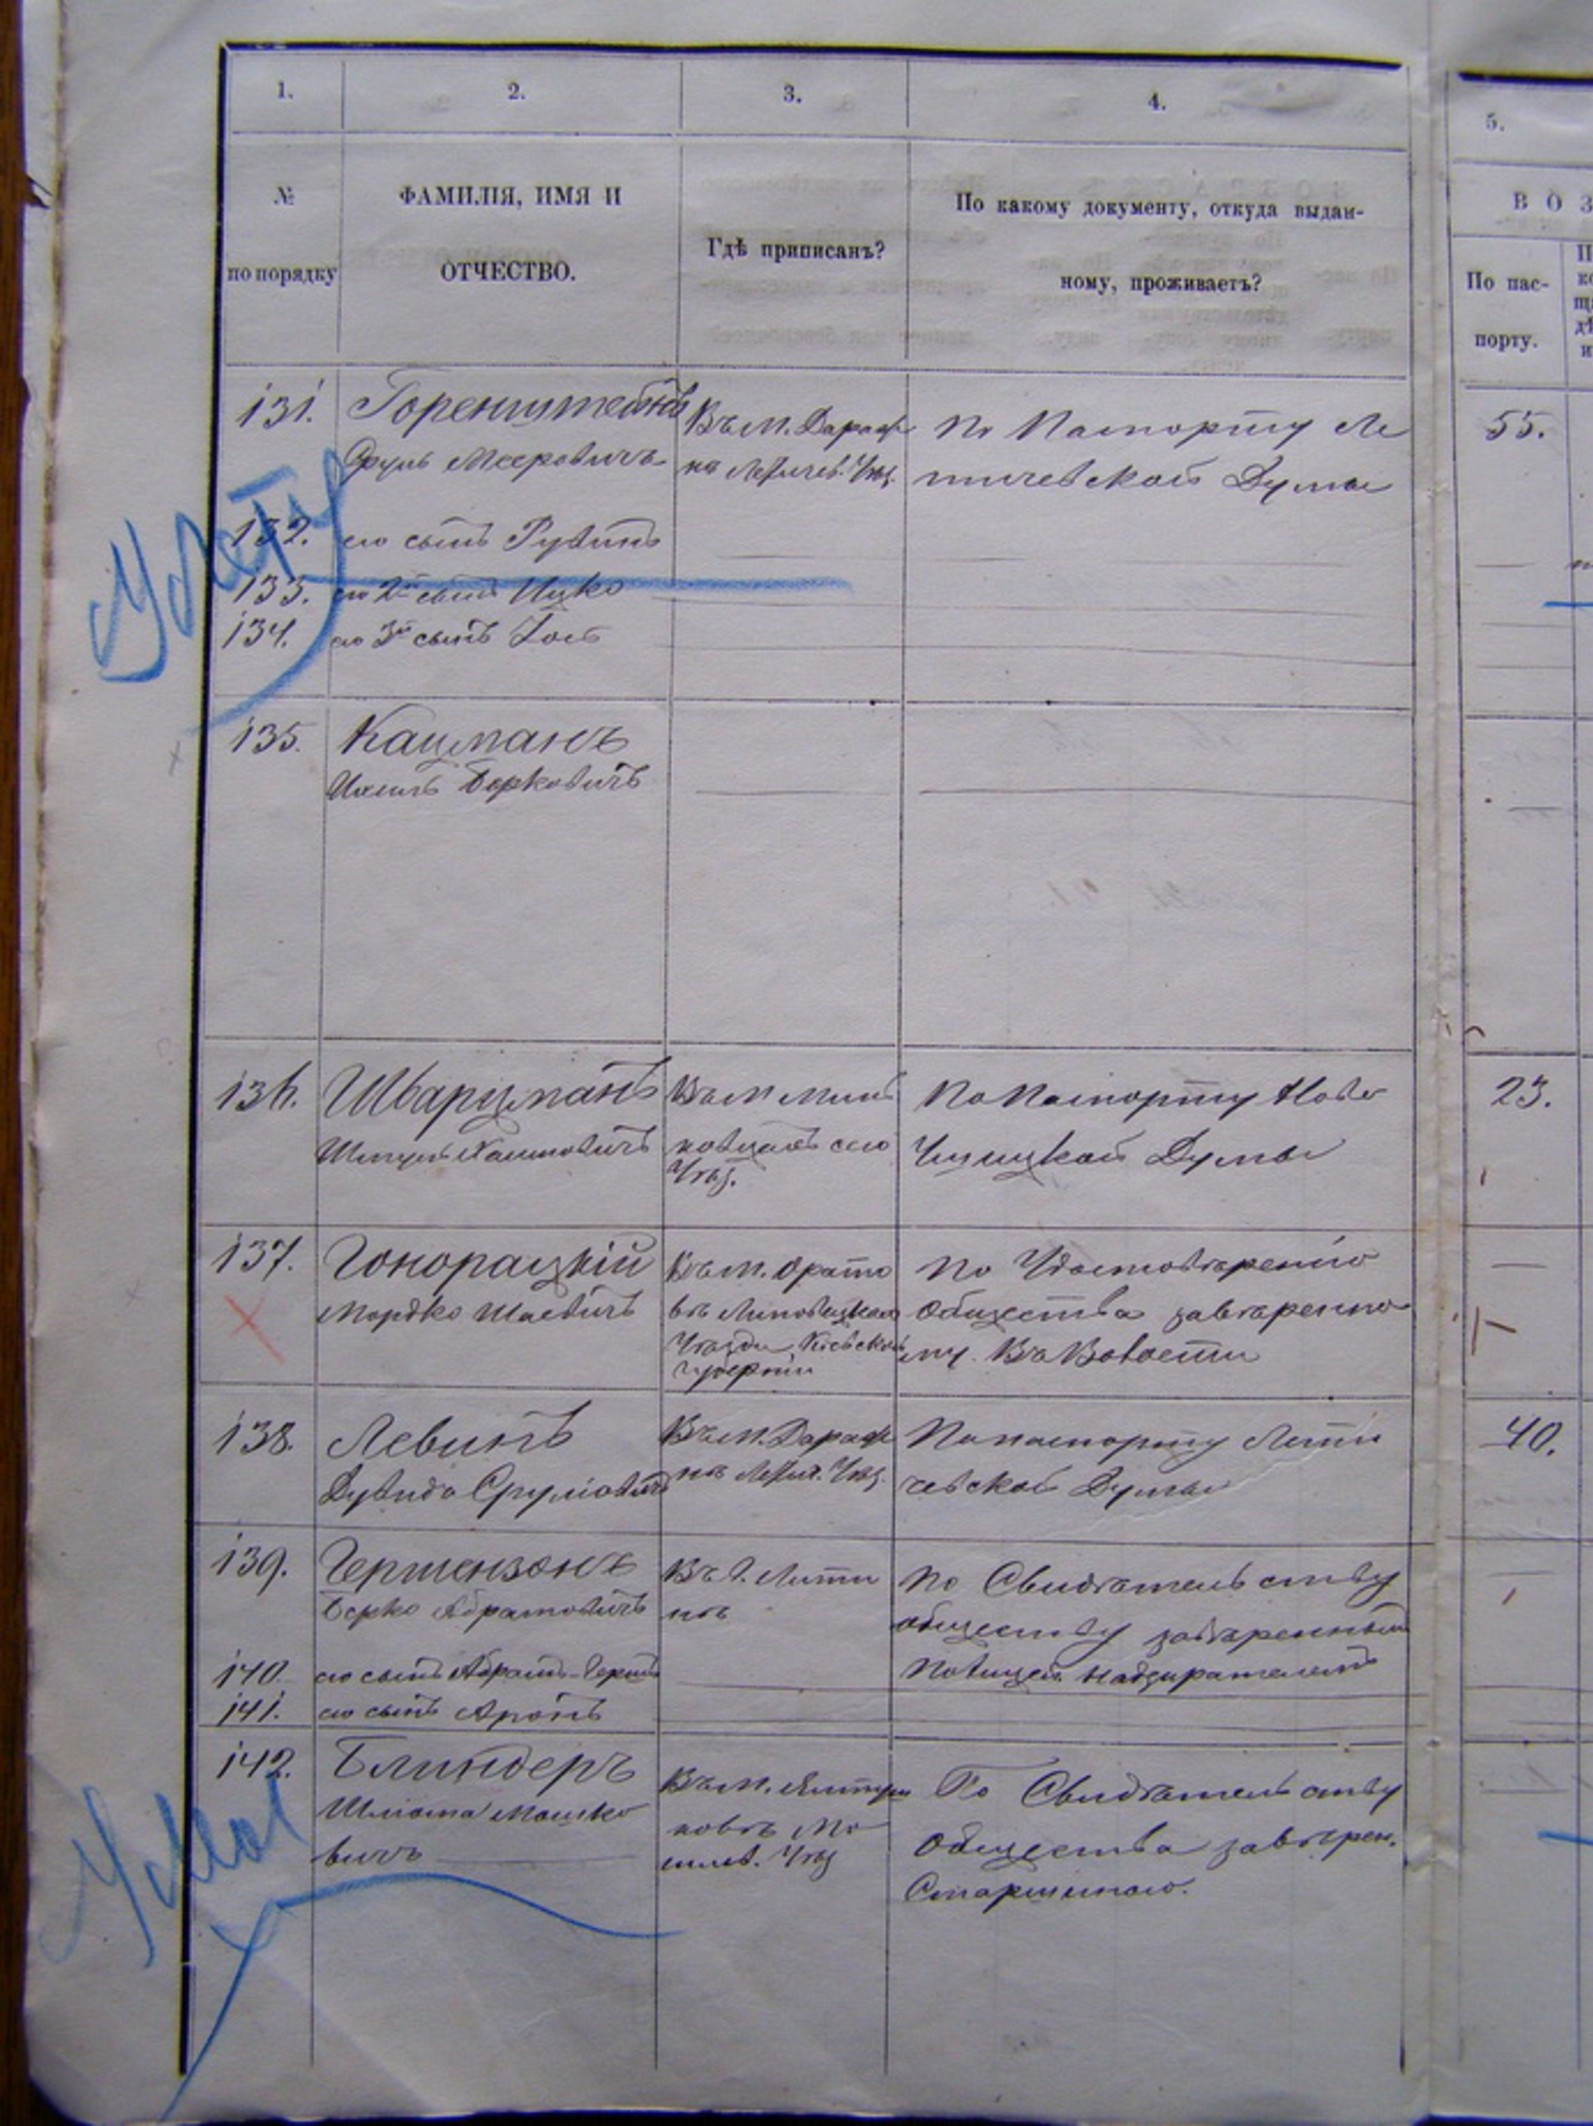 1.
2.
3.
4.
5.
№
по порядку
ФАМИЛІЯ, ИМЯ И
ОТЧЕСТВО.
Гдѣ приписанъ?
По какому документу, откуда выдан-
ному, проживаетъ?
В О З
По пас-
порту.
131.
Горенштейнъ
Сруль Мееровичъ
Въ м. Дараж
нѣ Летичев. Уѣз.
По Паспорту Ле
тичевской Думы
55.
132.
его сынъ Рувинъ
133.
его 2й сынъ Ицко
134.
его 3й сынъ Іось
135.
Кацманъ
Берковичъ
136.
Шварцманъ
Шмуль Хаимовичъ
Въ м. Минь
ковцахъ сего
Уѣз.
По Паспорту Ново
Ушицкой Думы
23.
137.
Гонорацкій
Мордко Шаевичъ
Въ м. Орато
вѣ Липовецкаго
Уѣзда, Кіевской
губерніи
По Удостовѣренію
общества завѣренно
му. Въ Волости
138.
Левинъ
Дувидъ Сруліовичъ
Въ м. Дараж
нѣ Летич. Уѣз.
По паспорту Лети
чевской Думы
40.
139.
Гершензонъ
Берко Абрамовичъ
Въ г. Лити
нѣ
По Свидѣтельству
обществу завѣренный
Полицей. Надзирателемъ
140.
его сынъ Абрамъ-Гершъ
141.
его сынъ Аронъ
142.
Блиндеръ
Шліома Мошко
вичъ
Въ м. Ялтуш
ковѣ Мо
гилев. Уѣз
По Свидѣтельству
общества завѣрен.
Старшиною.